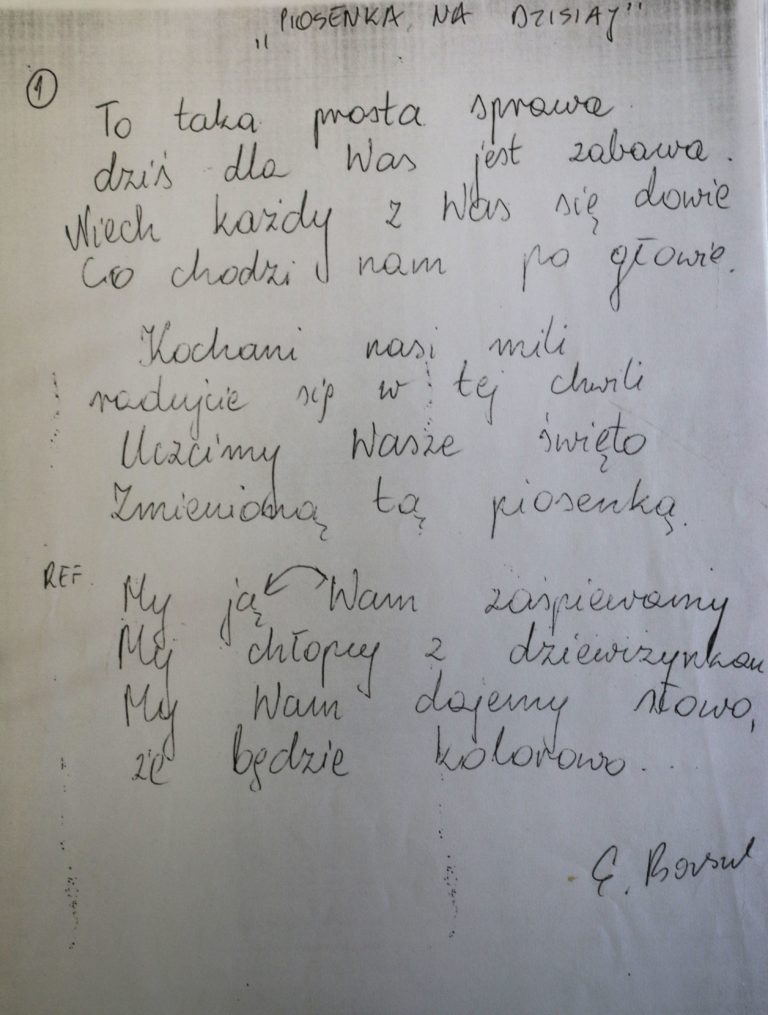 „PIOSENKA NA DZISIAJ"
1
To taka prosta sprawa
dziś dla Was jest zabawa.
Niech każdy z Was się dowie
Co chodzi nam po głowie.
Kochani nasi mili
radujcie się w tej chwili
Uczcimy Wasze święto
Zmienioną tą piosenką.
REF. My ją Wam zaśpiewamy
My chłopcy z dziewczynkam
My Wam dajemy słowo,
że będzie kolorowo...
E.